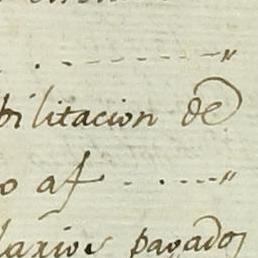 . . - - - - - - - "
bilitacion de
o af - . - - - "
larios pagados